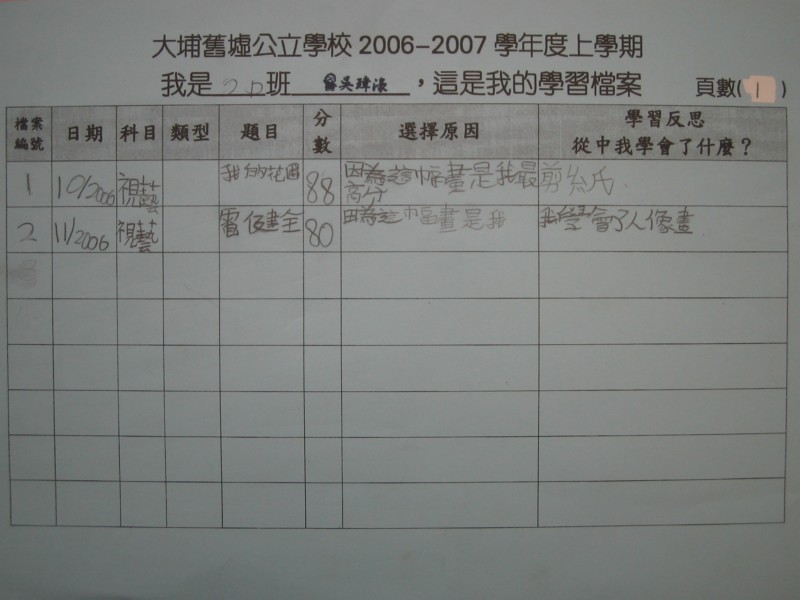 大埔舊墟公立學校 2006–2007 學年度上學期
我是 班 吳 ，這是我的學習檔案 頁數( 1 )
檔案編號 日期 科目 類型 題目 分數 選擇原因 學習反思 從中我學會了什麼？
1 10/2006 視藝 我的花園 88 因為這幅畫是我最高分 剪
2 11/2006 視藝 健全 80 因為這幅畫是我 我學會了人像畫